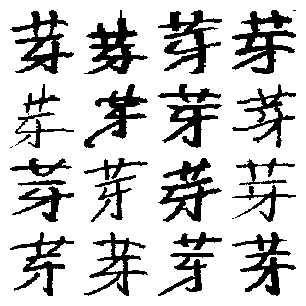 芽芽芽芽
芽芽芽芽
芽芽芽芽
芽芽芽芽